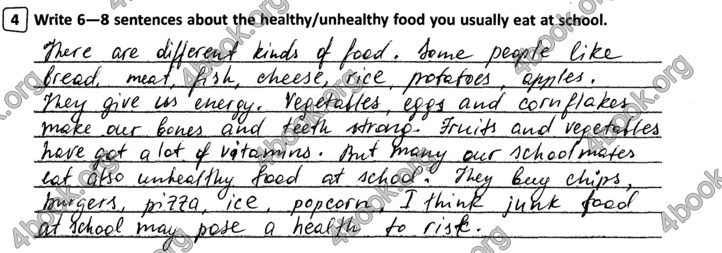 4 Write 6–8 sentences about the healthy/unhealthy food you usually eat at school.
There are different kinds of food. Some people like
bread, meat, fish, cheese, rice, potatoes, apples.
They give us energy. Vegetables, eggs and cornflakes
make our bones and teeth strong. Fruits and vegetables
have got a lot of vitamins. But many our schoolmates
eat also unhealthy food at school. They buy chips,
burgers, pizza, ice, popcorn, I think junk food
at school may pose a health to risk.
4book.org